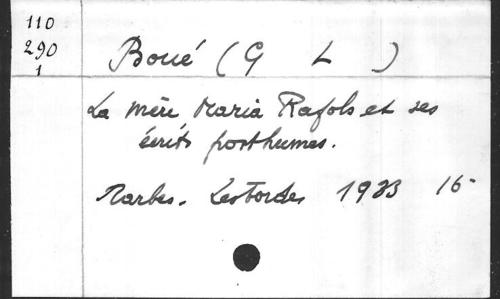 110
290
1
Boué (G L )
La mère Maria Rafols et ses
écrits posthumes.
Tarbes. Lesbordes 1933 16-